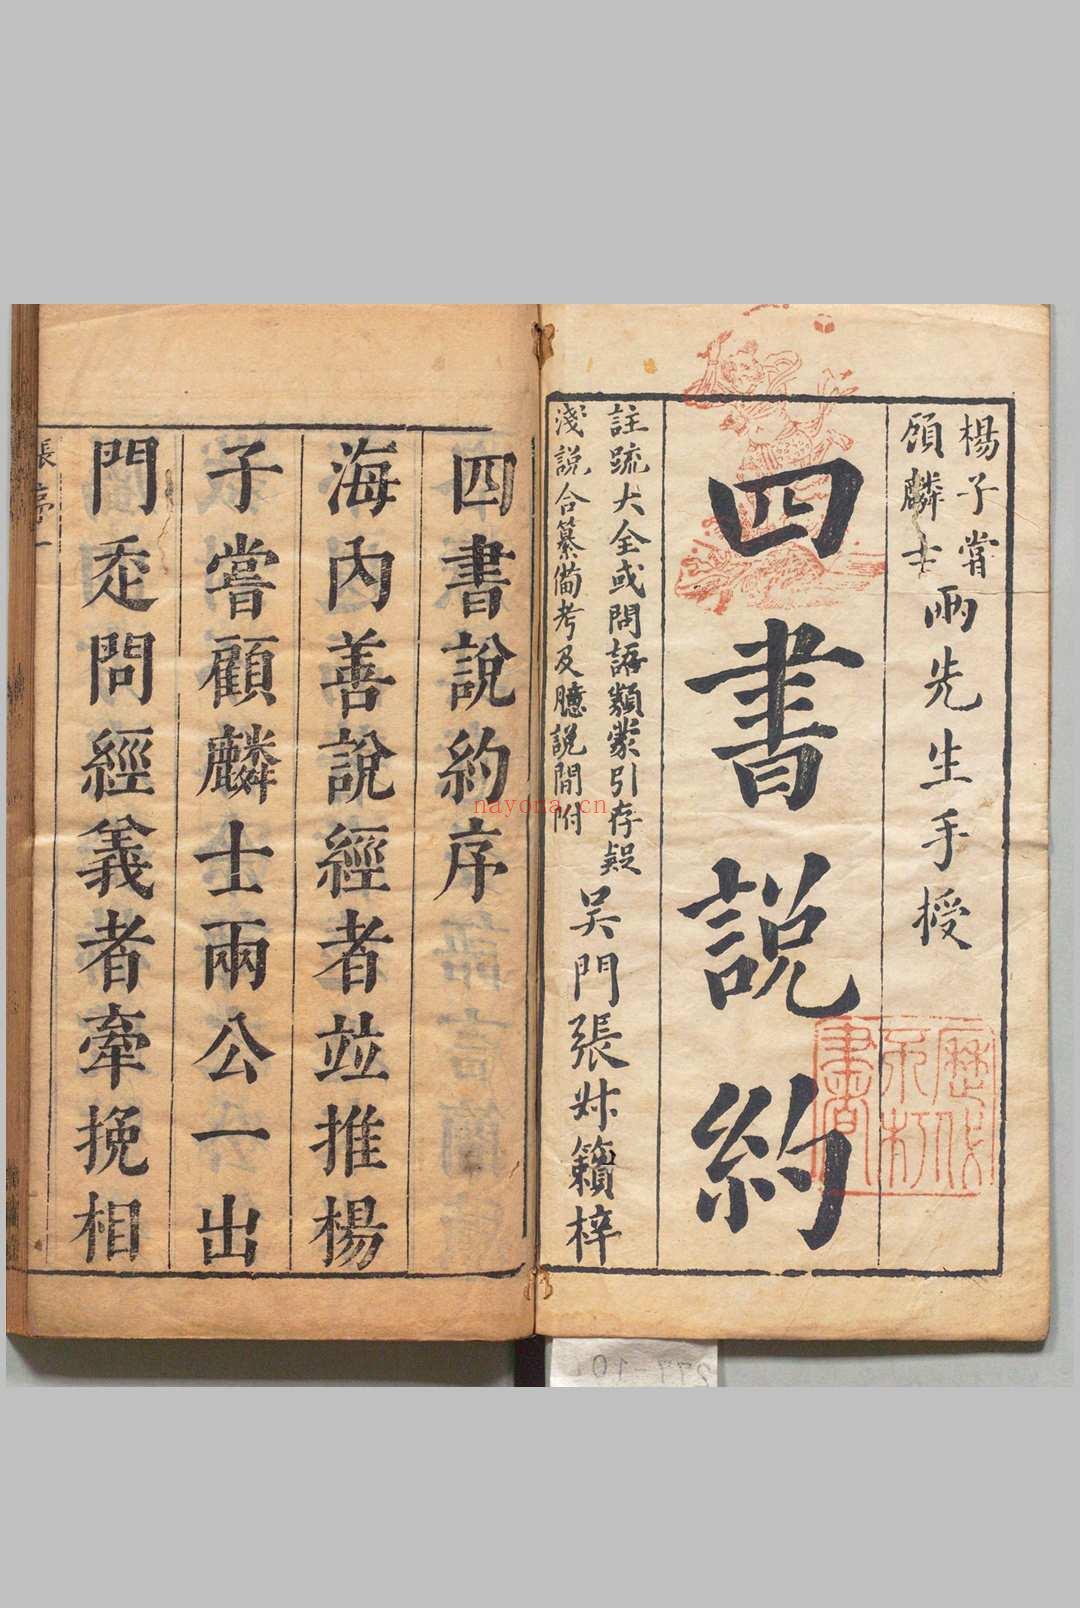 楊子甞
顧麟士
兩先生手授
四書說約
註疏大全或問語類蒙引存疑
淺說合纂備考及臆說間附
吴門張叔籟梓
四書說約序
海內善說經者竝推楊
子嘗顧麟士兩公一出
門㐬問經義者牽挽相
張序一
nayona.cn